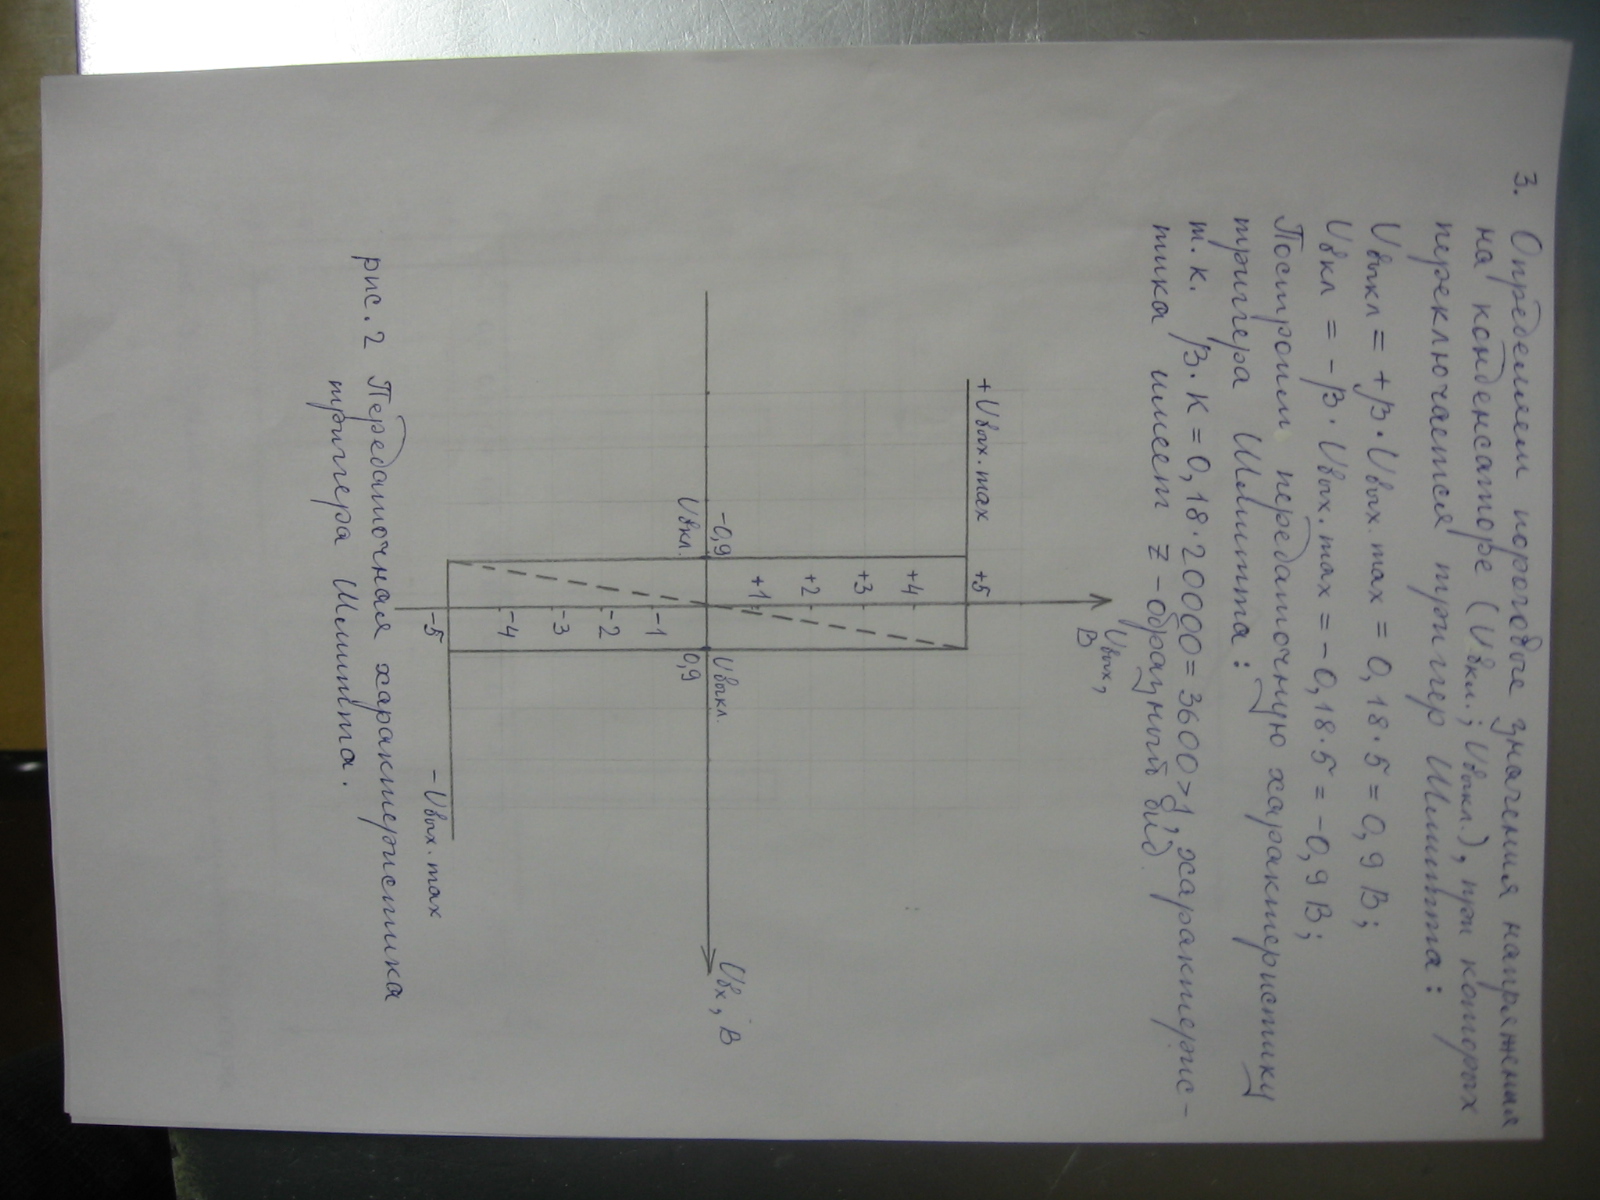 3. Определяем пороговые значения напряжения
на конденсаторе (Uвкл.; Uвыкл.), при которых
переключается триггер Шмитта:
Uвыкл = +β·Uвых.max = 0,18·5 = 0,9 В;
Uвкл = -β·Uвых.max = -0,18·5 = -0,9 В;
Построим передаточную характеристику
триггера Шмитта:
т.к. β·K = 0,18·20000 = 3600 > 1, характерис-
тика имеет z-образный вид
Uвых,
В
+Uвых.max
+5
+4
+3
+2
+1
-0,9
Uвыкл.
Uвх, В
Uвкл.
0,9
-1
-2
-3
-4
-5
-Uвых.max
рис. 2 Передаточная характеристика
триггера Шмитта.